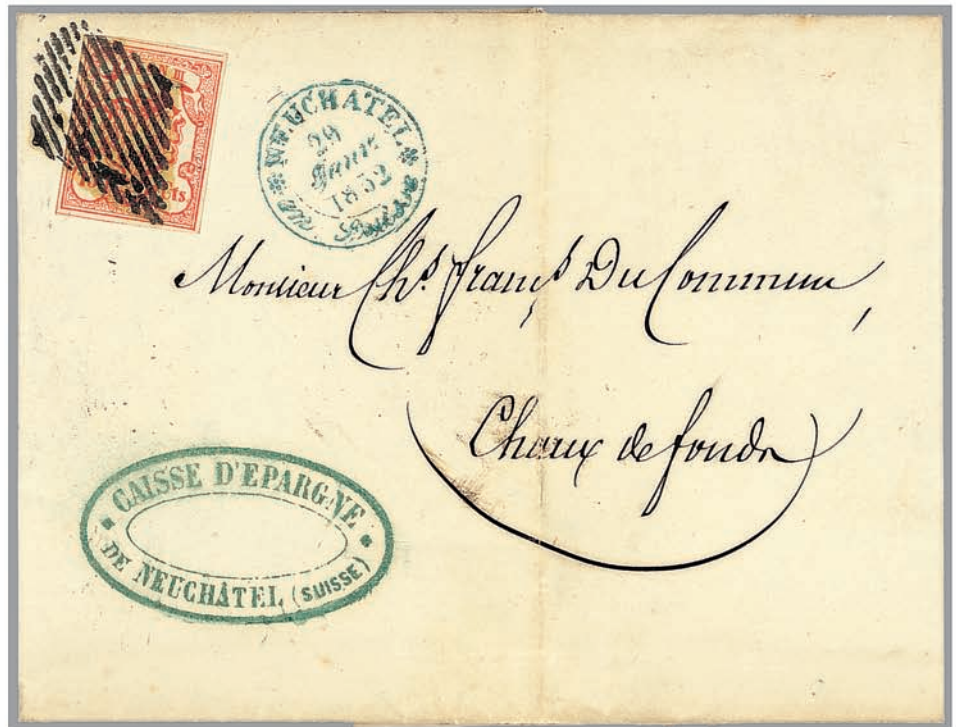 Cts
NEUCHATEL
29
Janv
1852
en Suisse
Monsieur Chs françs DuCommun,
Chaux de fonds
CAISSE D'EPARGNE
DE NEUCHÂTEL (SUISSE)